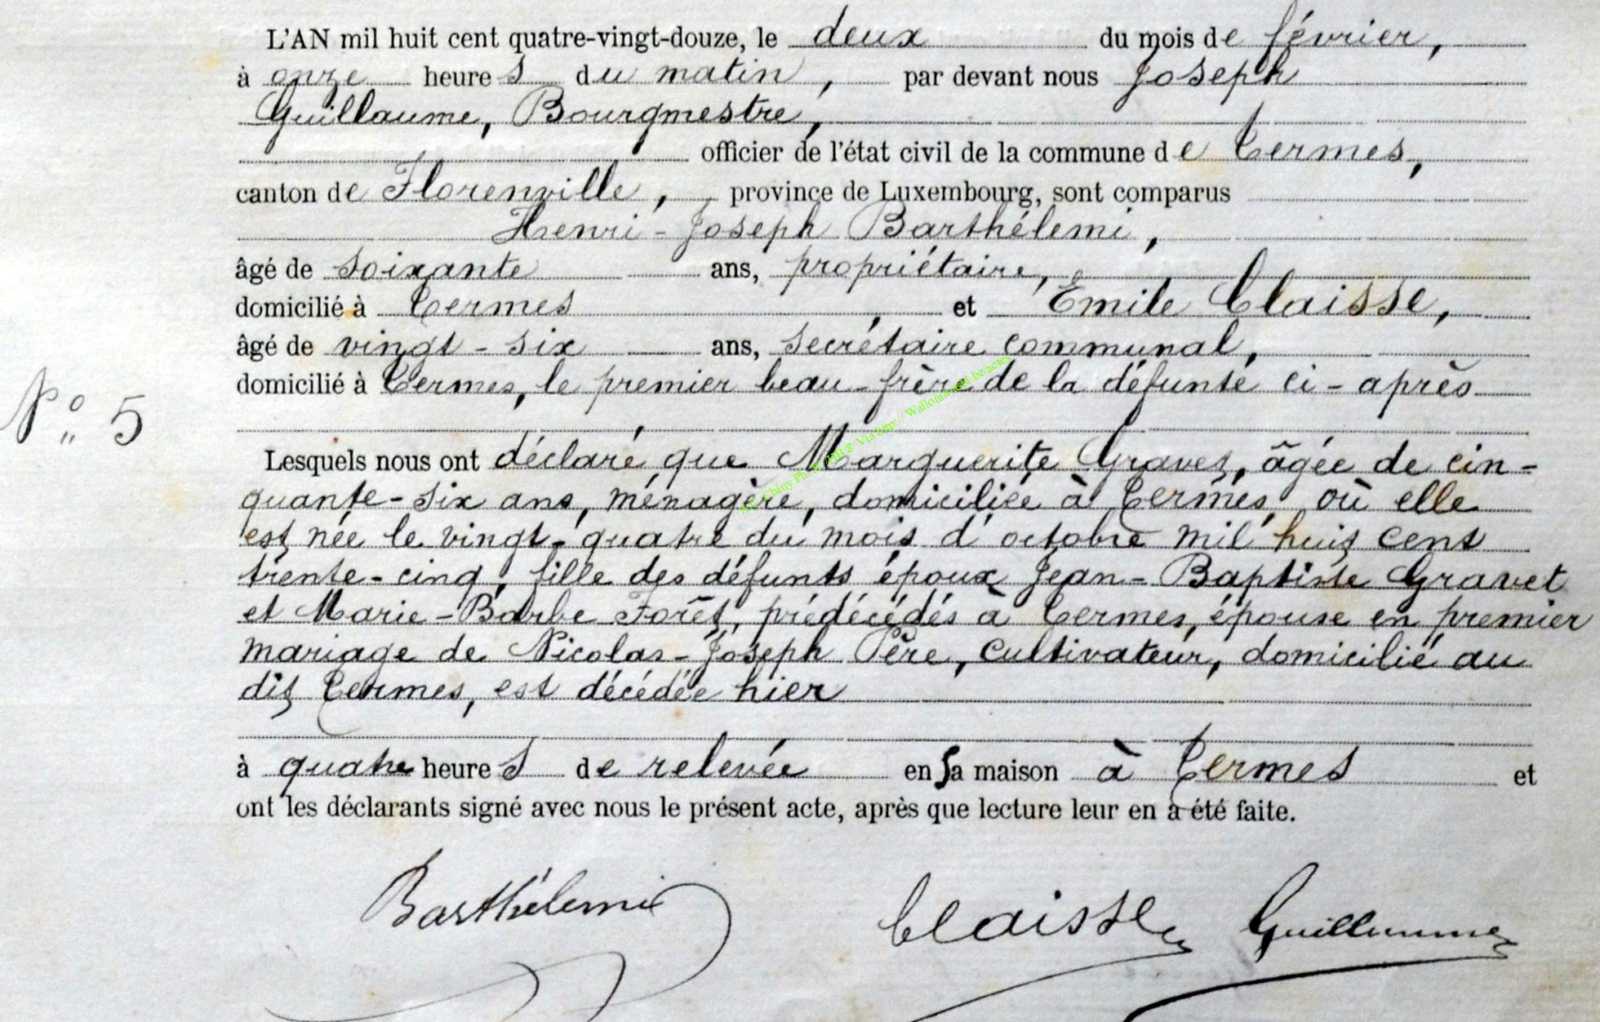 L'AN mil huit cent quatre-vingt-douze, le deux du mois de février,
à onze heures du matin, par devant nous Joseph
Guillaume, Bourgmestre,
officier de l'état civil de la commune de Termes,
canton de Florenville, province de Luxembourg, sont comparus
Henri-Joseph Barthélemi,
âgé de soixante ans, propriétaire,
domicilié à Termes, et Émile Claisse,
âgé de vingt-six ans, secrétaire communal,
domicilié à Termes, le premier beau-frère de la défunte ci-après
N° 5
Lesquels nous ont déclaré que Marguerite Gravet, âgée de cin-
quante-six ans, ménagère, domiciliée à Termes, où elle
est née le vingt-quatre du mois d'octobre mil huit cent
trente-cinq, fille des défunts époux Jean-Baptiste Gravet
et Marie-Barbe Forêt, prédécédés à Termes, épouse en premier
mariage de Nicolas-Joseph Père, cultivateur, domicilié au
dit Termes, est décédée hier
à quatre heures de relevée en sa maison à Termes et
ont les déclarants signé avec nous le présent acte, après que lecture leur en a été faite.
Barthélemi Claisse Guillaume